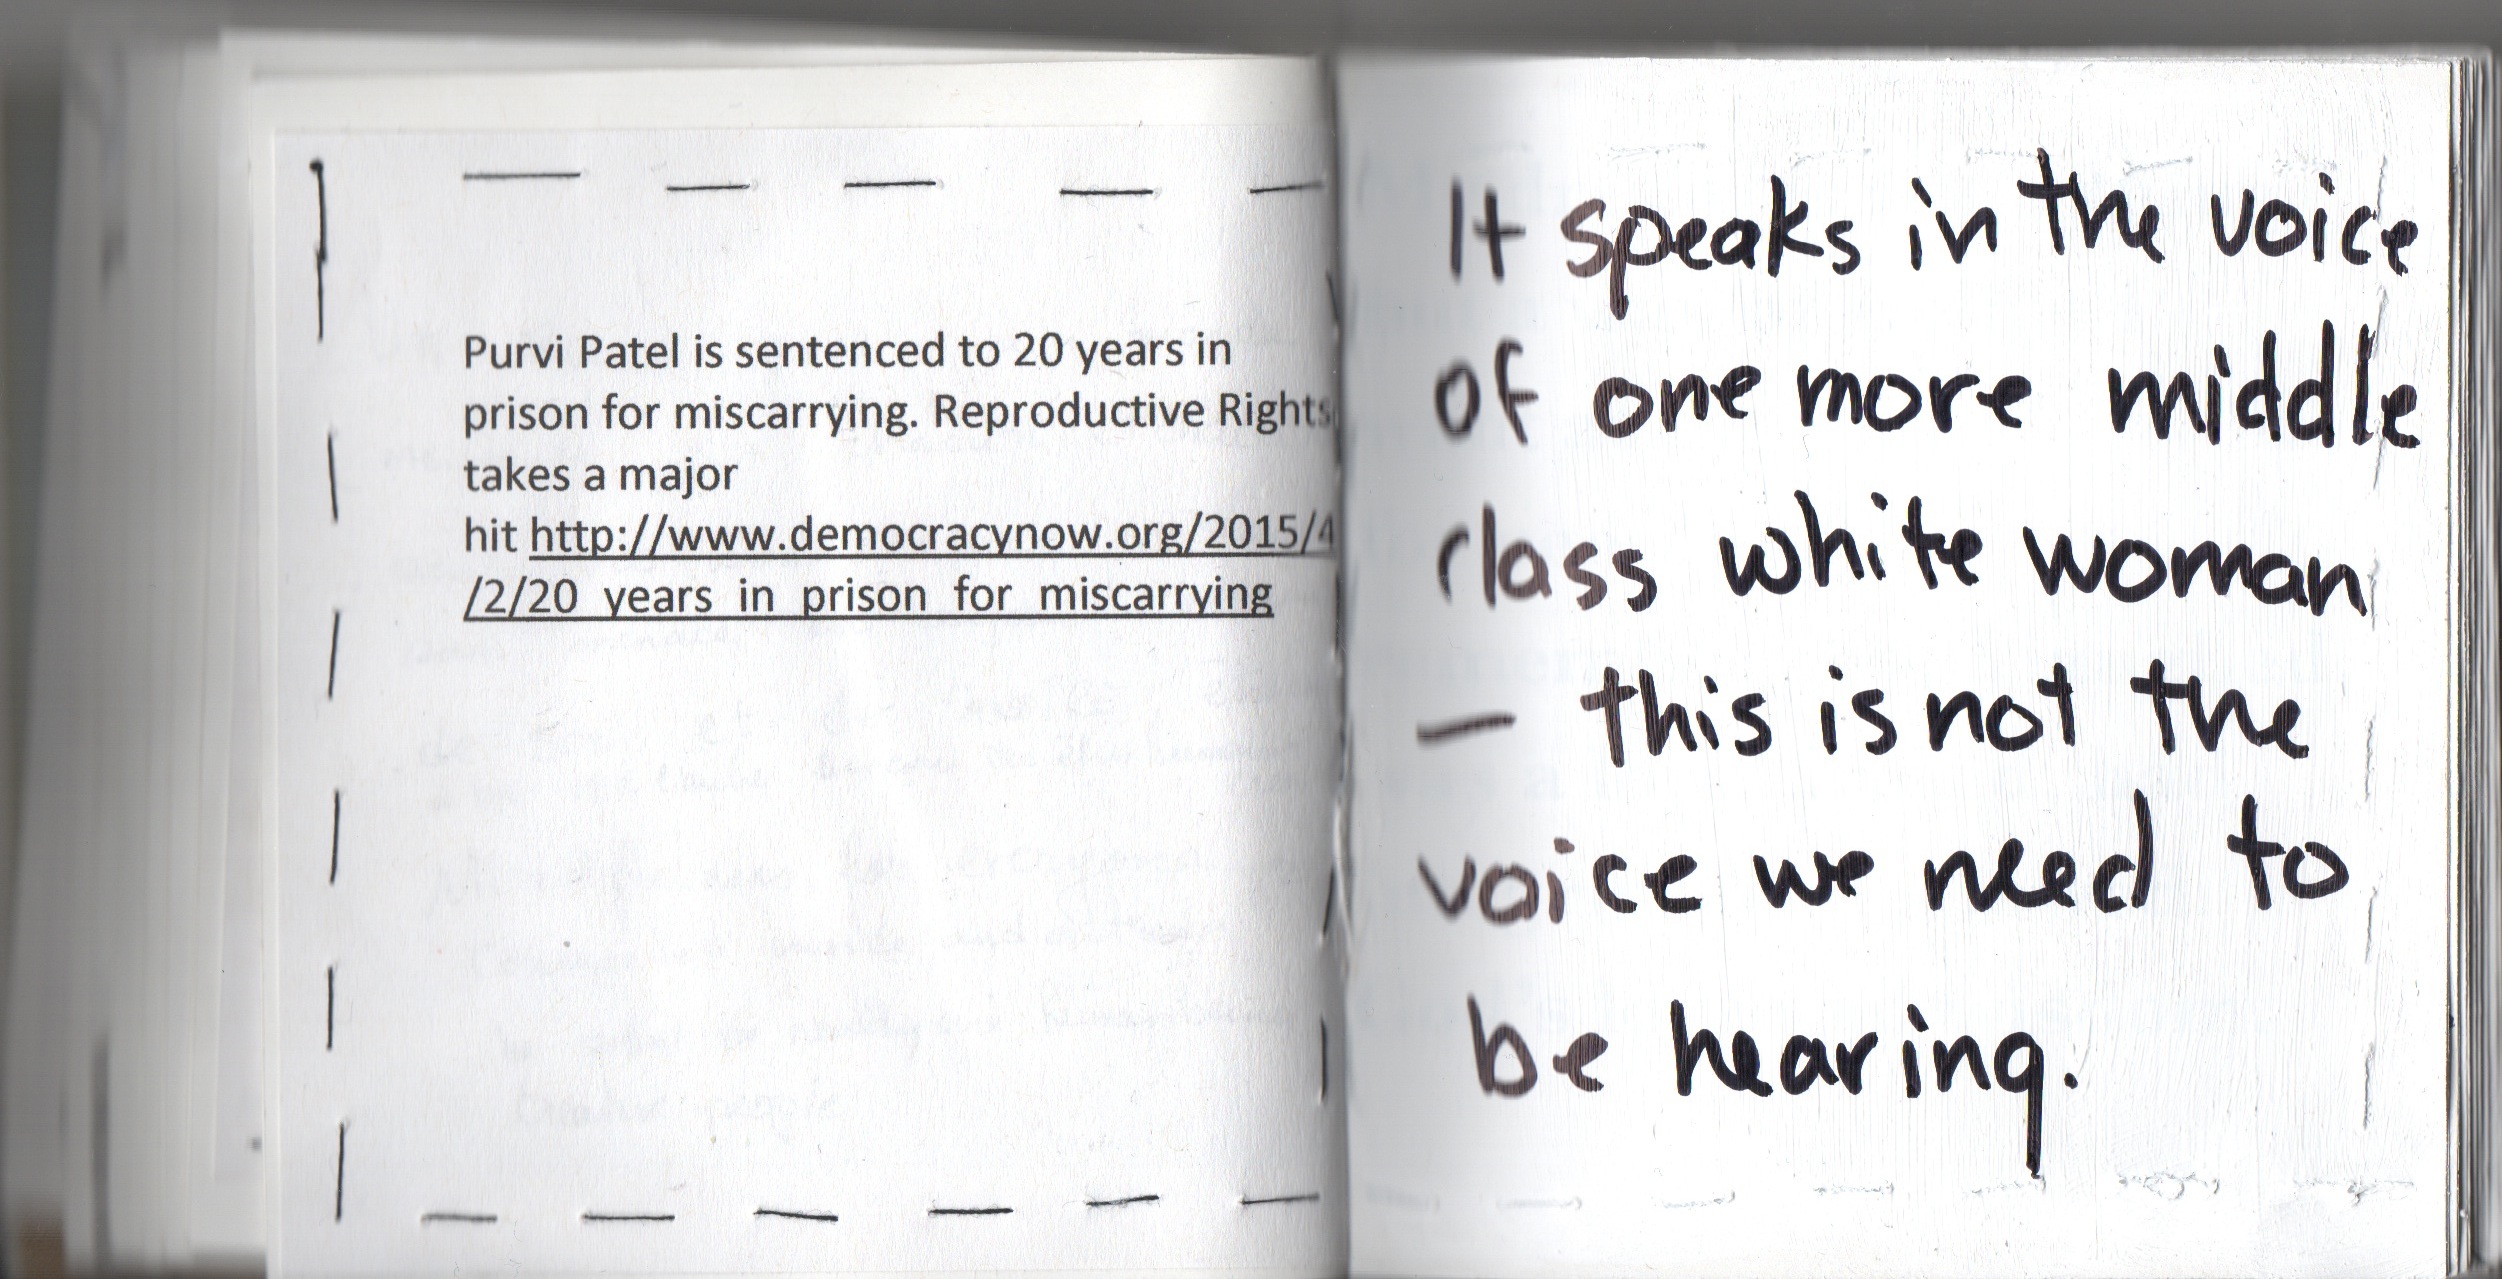 Purvi Patel is sentenced to 20 years in
prison for miscarrying. Reproductive Rights
takes a major
hit http://www.democracynow.org/2015/4
/2/20 years in prison for miscarrying
It speaks in the voice
of one more middle
class white woman
— this is not the
voice we need to
be hearing.